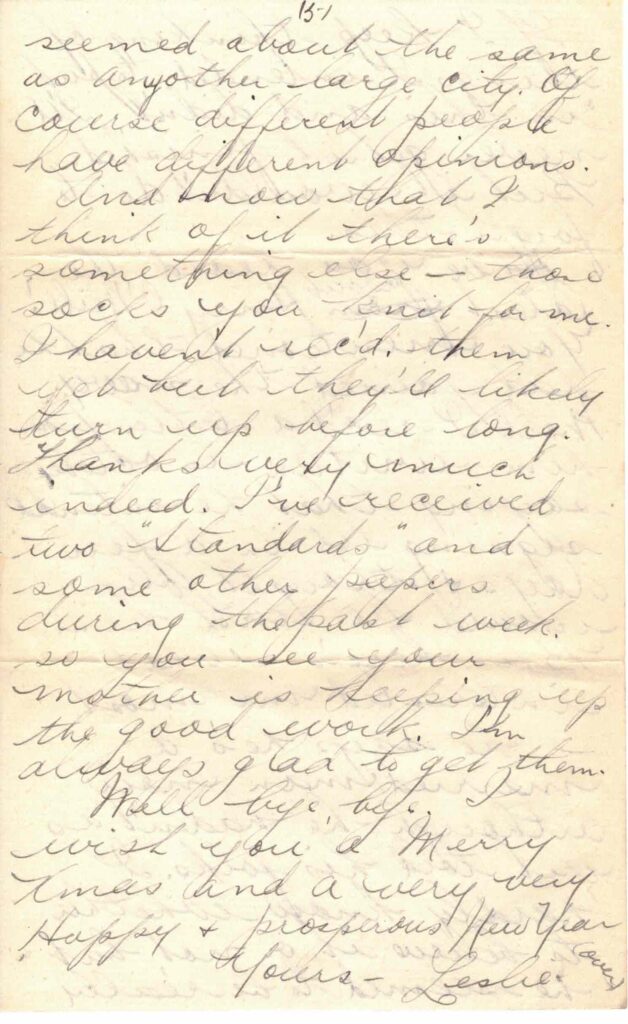 15-1
seemed about the same
as anyother large city. Of
course different people
have different opinions.
And now that I
think of it there's
something else - those
socks you knit for me.
I haven't rec'd. them
yet but they'll likely
turn up before long.
Thanks very much
indeed. I've received
two "Standards" and
some other papers
during the past week.
so you see your
mother is keeping up
the good work. I'm
always glad to get them.
Well bye, bye. I
wish you a Merry
Xmas and a very very
Happy + prosperous New Year
(over)
Yours - Leslie.